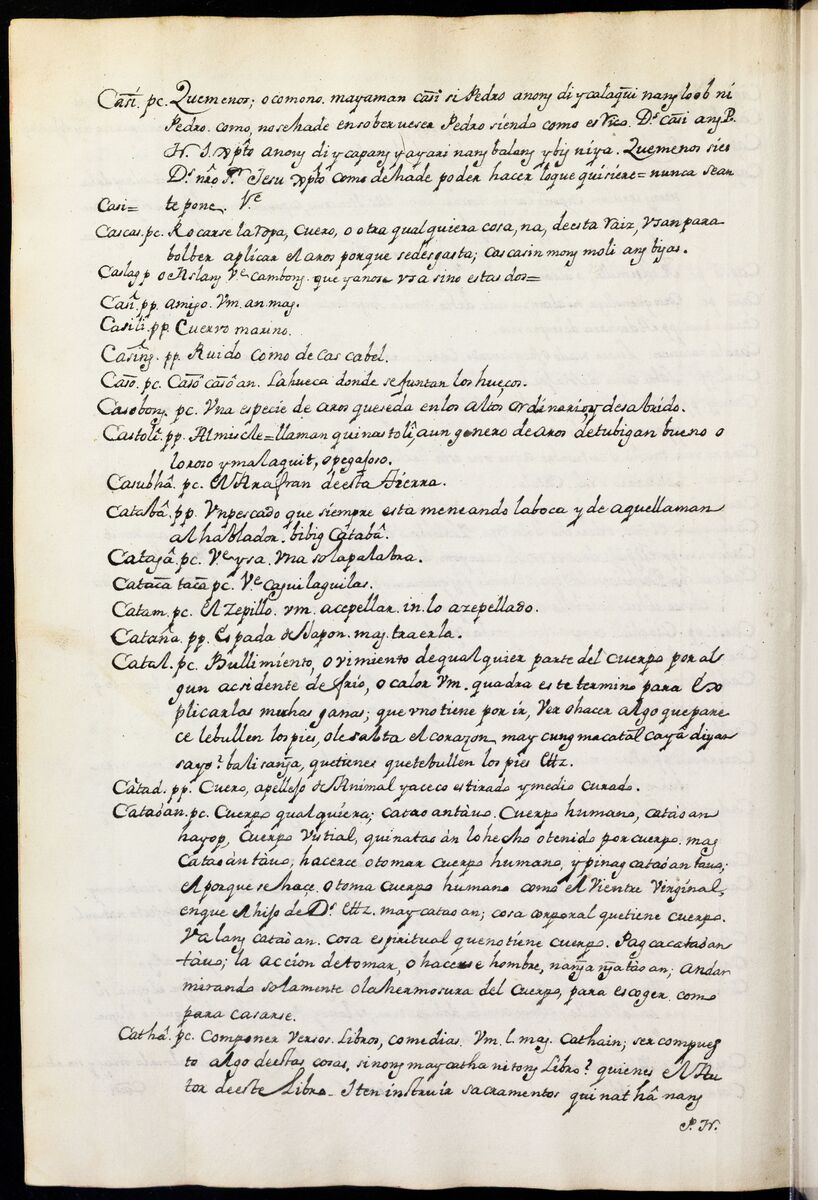 Casî. pc. Quemenos; o como no. mayaman casî si Pedro anong di ycalaqui nang loob ni
Pedro. como, nosehade ensobervecer Pedro siendo como es Rico. Ds. casî ang P.
N. J. Xpto anong di ycapangyayari nang balang ybig niya. Quemenos sien
Ds. nro Sr. Jesu Xpto como dehade poder hacer loque quisiere= nunca sean
Casi= te pone. Ve.
Cascas. pc. Rocarse la ropa, Cuero, o otra qualquiera cosa, na, deesta raiz, Vsan para
bolber aplicar el aros porque sedesgasta; cascasin mong moli ang bigas.
Caslag p o Aslang Ve cambong. que yanose vsa sino estas dos=
Casî. pp. amigo. Vm. an. mag.
Casilî. pp. Cuervo marino.
Casîng. pp. Ruido como de cascabel.
Casô. pc. Casô casôan. La hueca donde sejuntan los hueços.
Casobong. pc. Vna especie de aros queseda en los altos ordinario, y desabrido.
Castolî. pp. Almiscle= llaman quinastolî, aun genero de aros detubigan bueno o
loroso y malaquit, o pegajoso.
Casubhâ. pc. el Anafran deesta tierra.
Catabâ. pp. Vn pescado que siempre esta meneando laboca y de aquellaman
al hablador. bibig Catabâ.
Catagâ. pc. Ve. ysa. Vna sola palabra.
Cataca taca pc. Ve caguilaguilas.
Catam. pc. el Zepillo. vm. acepellar. in. lo azepellado.
Catana. pp. Espada de Japon. mag. traerla.
Catal. pc. Bullimiento, o vimiento dequalquier parte del cuerpo por al
gun acsidente de frio, o calor Vm. quadra este termino para Ex
plicarlas muchas ganas; que vno tiene por ir, Ver o hacer algo quepare
ce lebullen los pies, ole salta el corazon, may cung macatal cayâ diyan
sayo? balisanga, quetienes quetebullen los pies etz.
Catad. pp. Cuero, apellejo de Animal yaceco estirado y medio curado.
Cataoan. pc. Cuerpo qualquiera; cataoantâuo. Cuerpo humano, cataoan
hayop, Cuerpo Vistial, quinatao ân lo hecho o tenido por cuerpo. mag
Cataoantâuo; hacerce o tomar cuerpo humano, ypinagcataoantauo;
el porque se hace. o toma cuerpo humano como el Vientre Virginal,
enque el hijo de Ds. etz. maycataoan; cosa corporal quetiene cuerpo.
Valang cataoan. cosa espiritual que no tiene cuerpo. Pagcacataoan
tâuo; la accion detomar, o hacerse hombre, nangangatâoan; andar
mirando solamente olashermosura del Cuerpo, para escoger como
para casarse.
Cathâ. pc. Componer Versos. Libros, comedias. Vm. l. mag. Cathain; ser compues
to algo deestas cosas, sinong maycatha nitong Libro? quienes el Au
tor deeste Libro. Iten instruir sacramentos quinathâ nang
P. N.